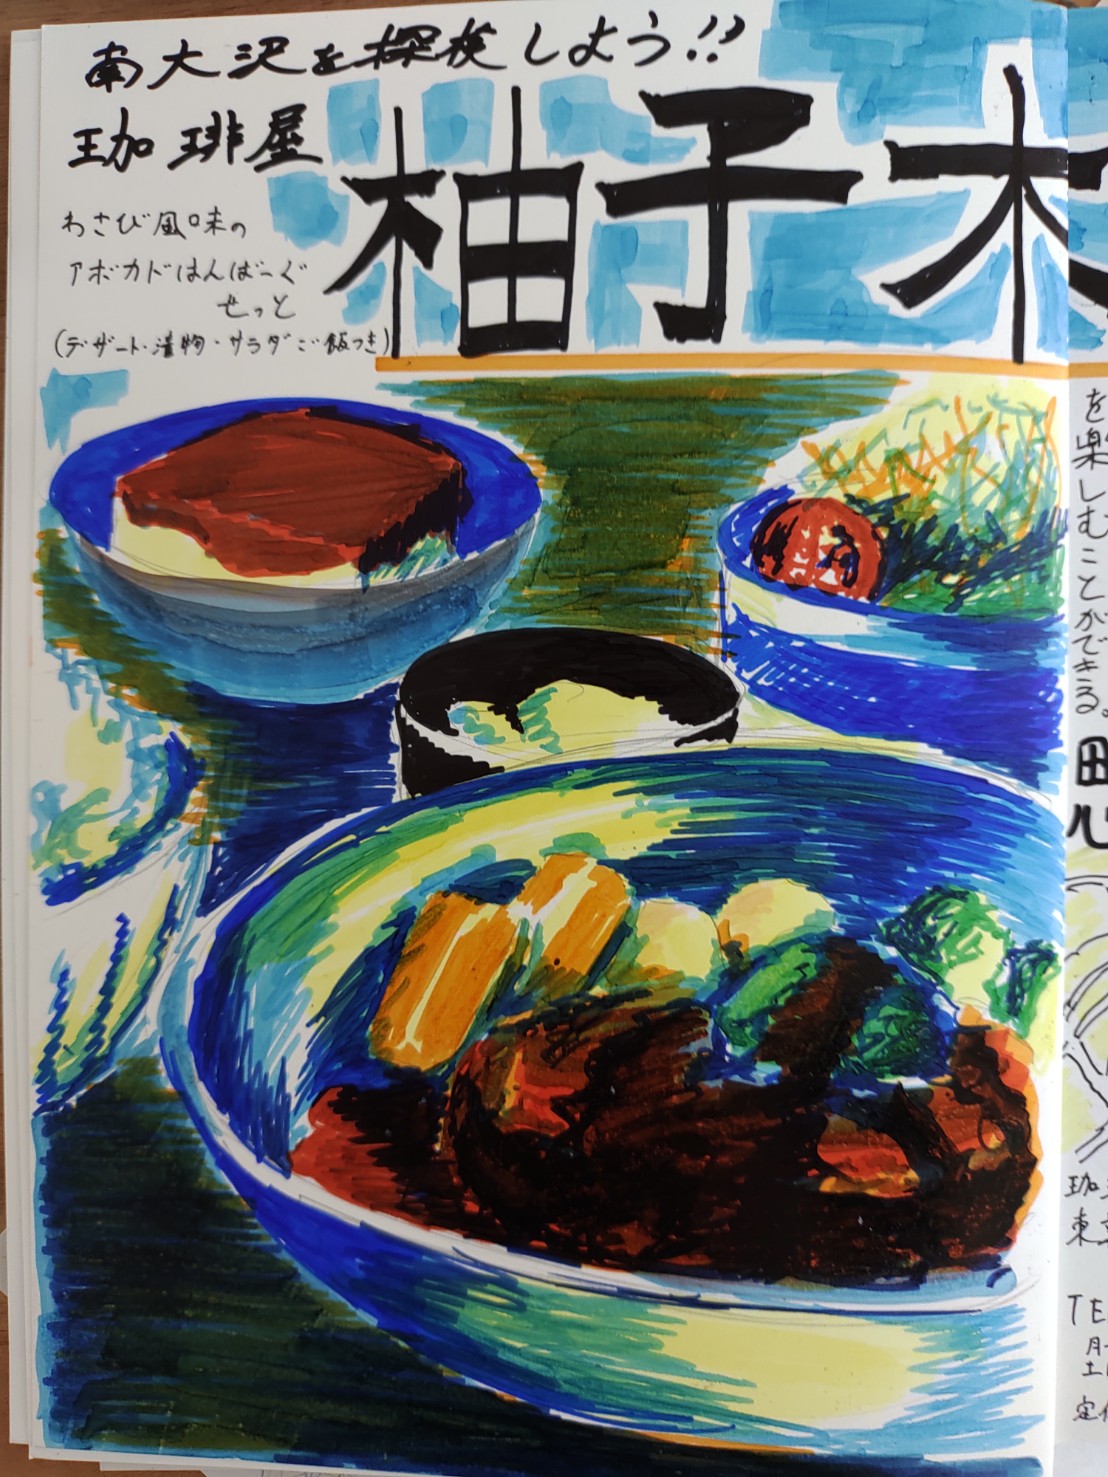 南大沢を探検しよう!!
珈琲屋
柚子木
わさび風味の
アボカドはんばーぐ
せっと
(デザート・漬物・サラダご飯つき)
を楽しむことができる。
珈
東京
TE
月
土
定休